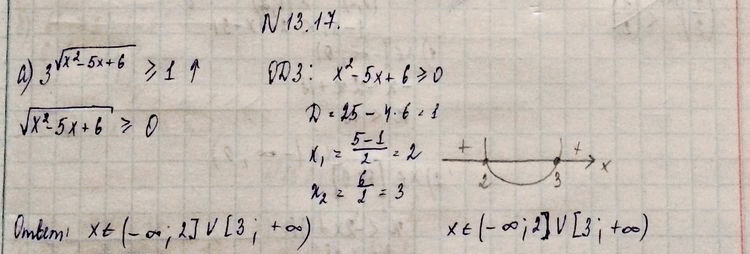 N 13.17.
а) 3^√(x²-5x+6) ≥ 1 ↑ ОДЗ: x²-5x+6 ≥ 0
√(x²-5x+6) ≥ 0 D = 25 - 4·6 = 1
x₁ = (5-1)/2 = 2
x₂ = 6/2 = 3
+ + 2 3 x
Ответ: x ∈ (-∞; 2] V [3; +∞) x ∈ (-∞; 2] V [3; +∞)